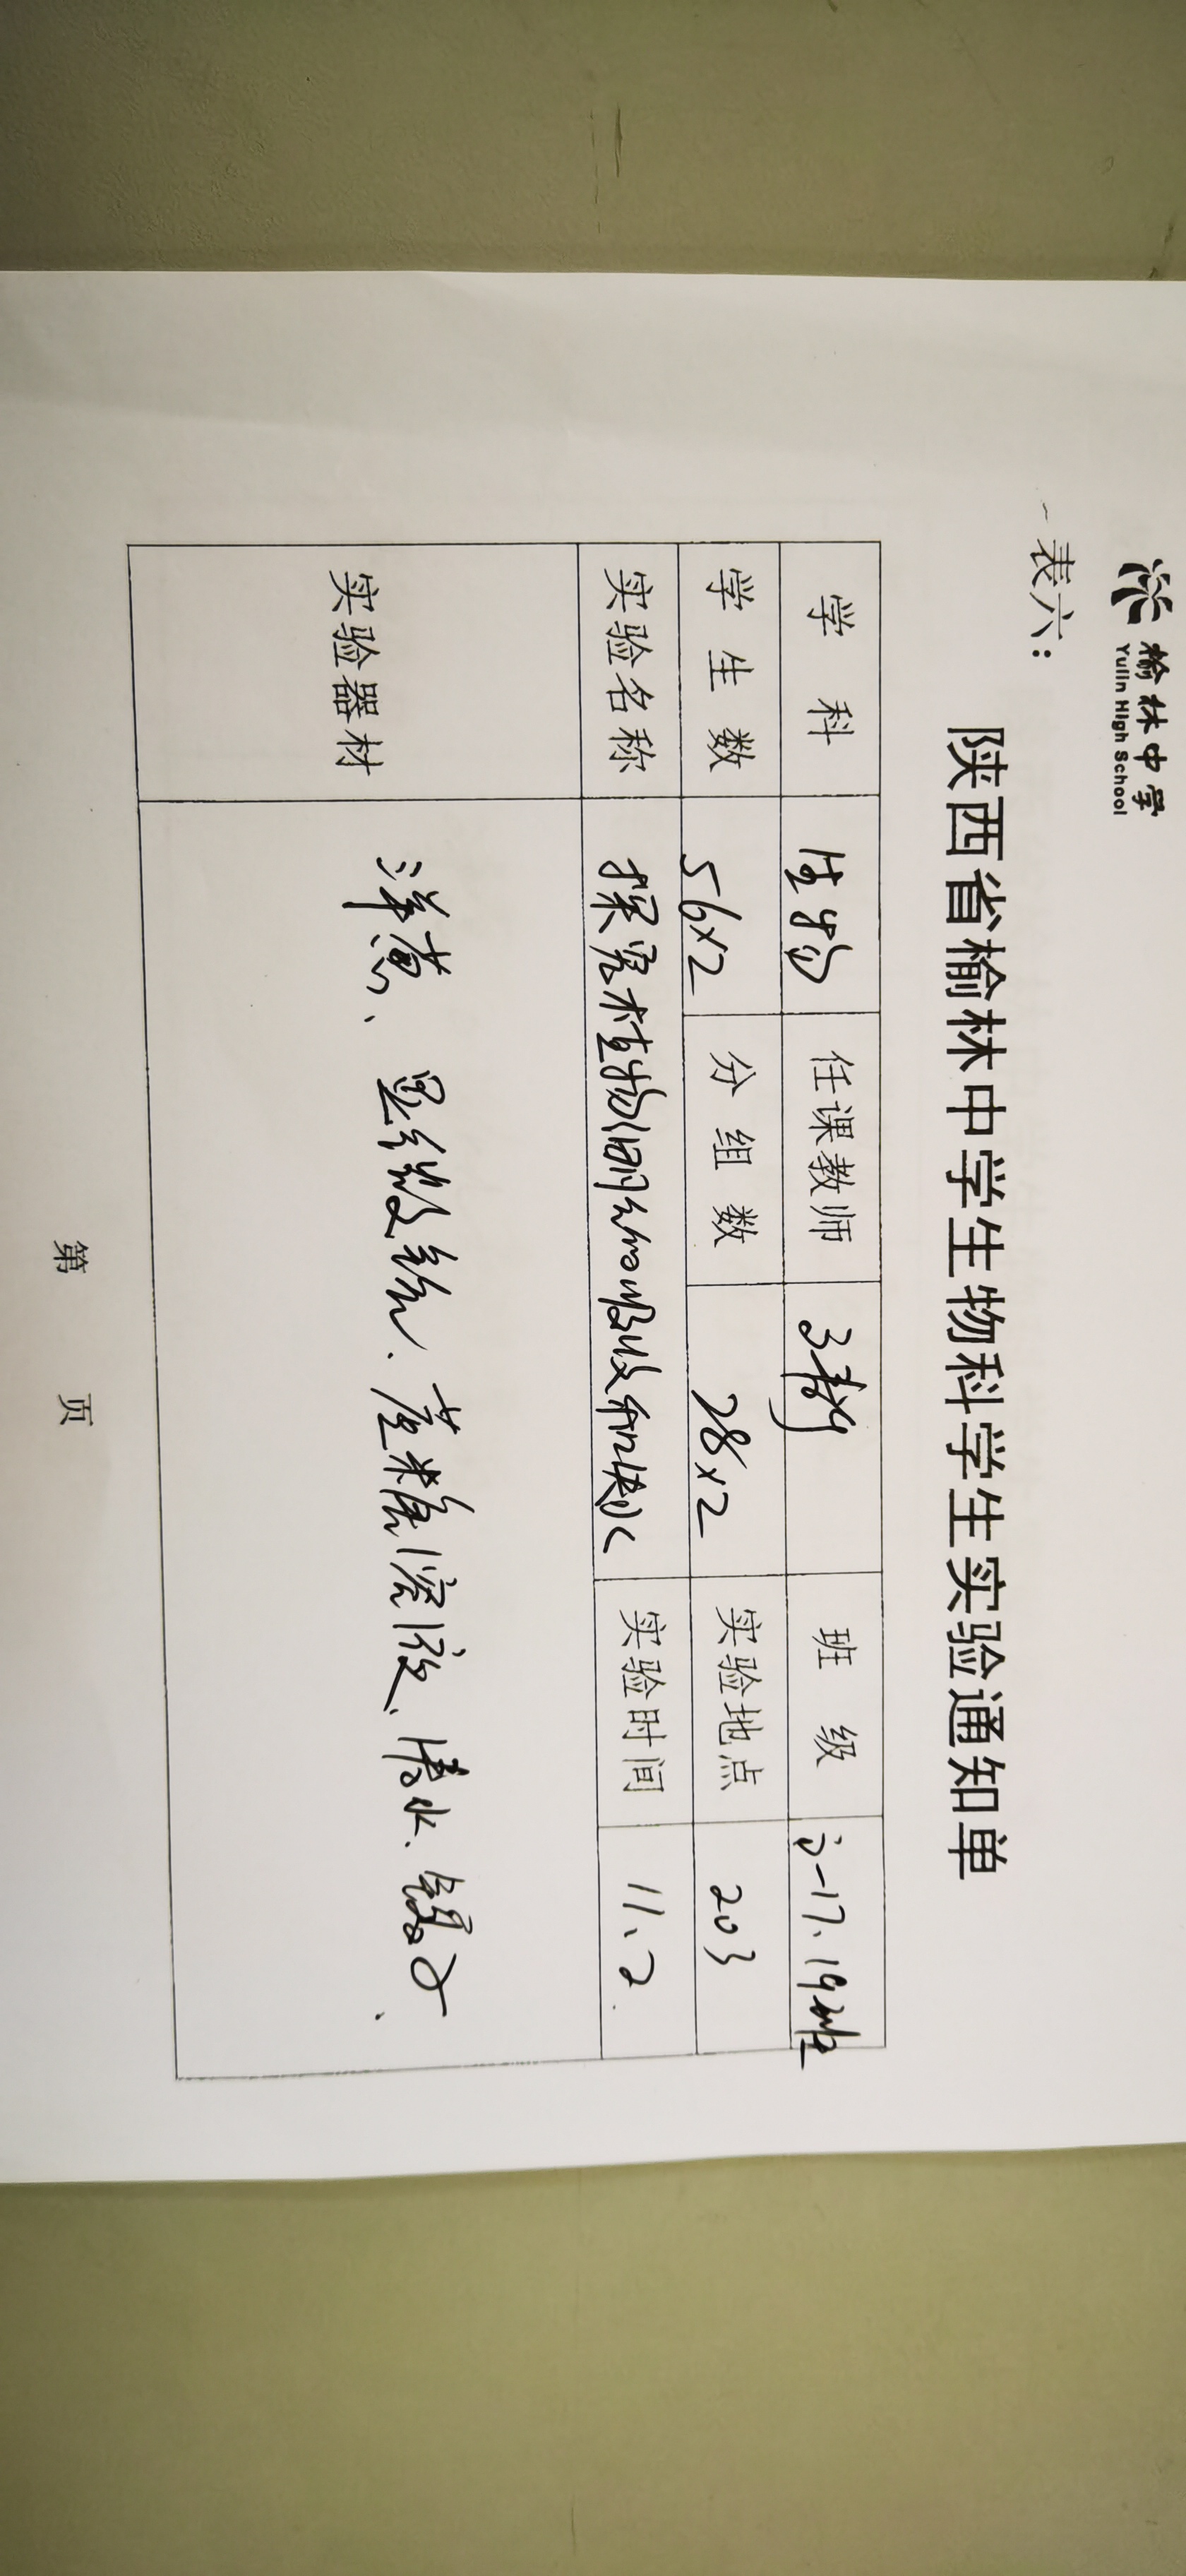 榆林中学
Yulin High School
表六：
陕西省榆林中学生物科学生实验通知单
学科 生物 任课教师 班级 17、19班
学生数 56×2 分组数 28×2 实验地点 203
实验名称 探究植物细胞的吸收和失水 实验时间 11、2
实验器材 洋葱、显微镜、蔗糖溶液、清水、镊子
第 页